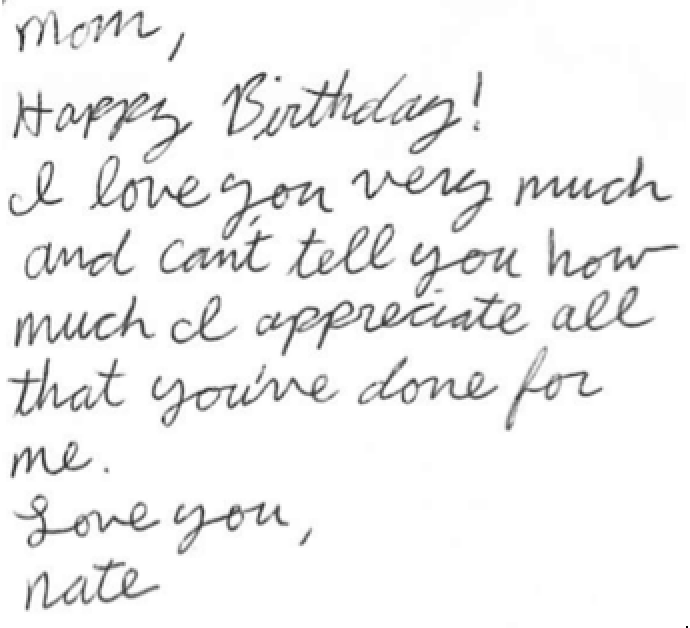 Mom,
Happy Birthday!
I love you very much
and can't tell you how
much I appreciate all
that you've done for
me.
Love you,
Nate